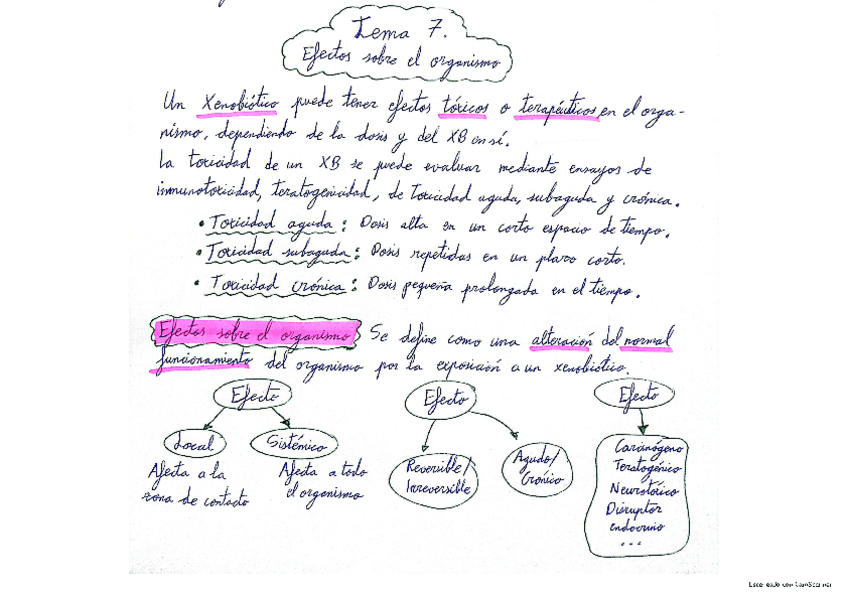 Tema 7.
Efectos sobre el organismo
Un Xenobiótico puede tener efectos tóxicos o terapéuticos en el orga-
nismo, dependiendo de la dosis y del XB en sí.
La toxicidad de un XB se puede evaluar mediante ensayos de
inmunotoxicidad, teratogenicidad, de Toxicidad aguda, subaguda y crónica.
• Toxicidad aguda: Dosis alta en un corto espacio de tiempo.
• Toxicidad subaguda: Dosis repetidas en un plazo corto.
• Toxicidad crónica: Dosis pequeña prolongada en el tiempo.
Efectos sobre el organismo Se define como una alteración del normal
funcionamiento del organismo por la exposición a un xenobiótico.
Efecto
Local
Sistémico
Afecta a la
zona de contacto
Afecta a todo
el organismo
Efecto
Reversible/
Irreversible
Agudo/
Crónico
Efecto
Carcinógeno
Teratogénico
Neurotóxico
Disruptor
endocrino
...